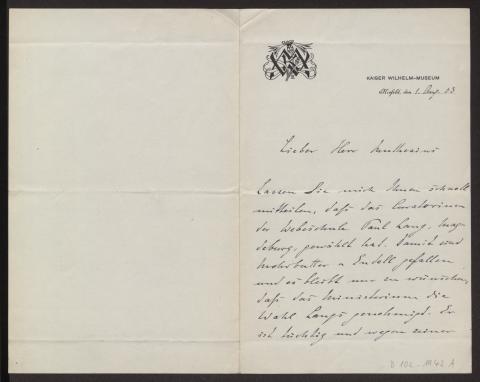 KAISER WILHELM-MUSEUM
Krefeld, den 1. Aug. 03
Lieber Herr Muthesius
Lassen Sie mich Ihnen schnell
mitteilen, daß das Curatorium
der Webeschule Paul Lang, Mag-
deburg, gewählt hat. Damit sind
Mohrbutter u Endell gefallen
und es bleibt nur zu wünschen,
daß das Ministerium die
Wahl Langs genehmigt. Er
ist tüchtig und wegen seiner
D 102 - 1142 A